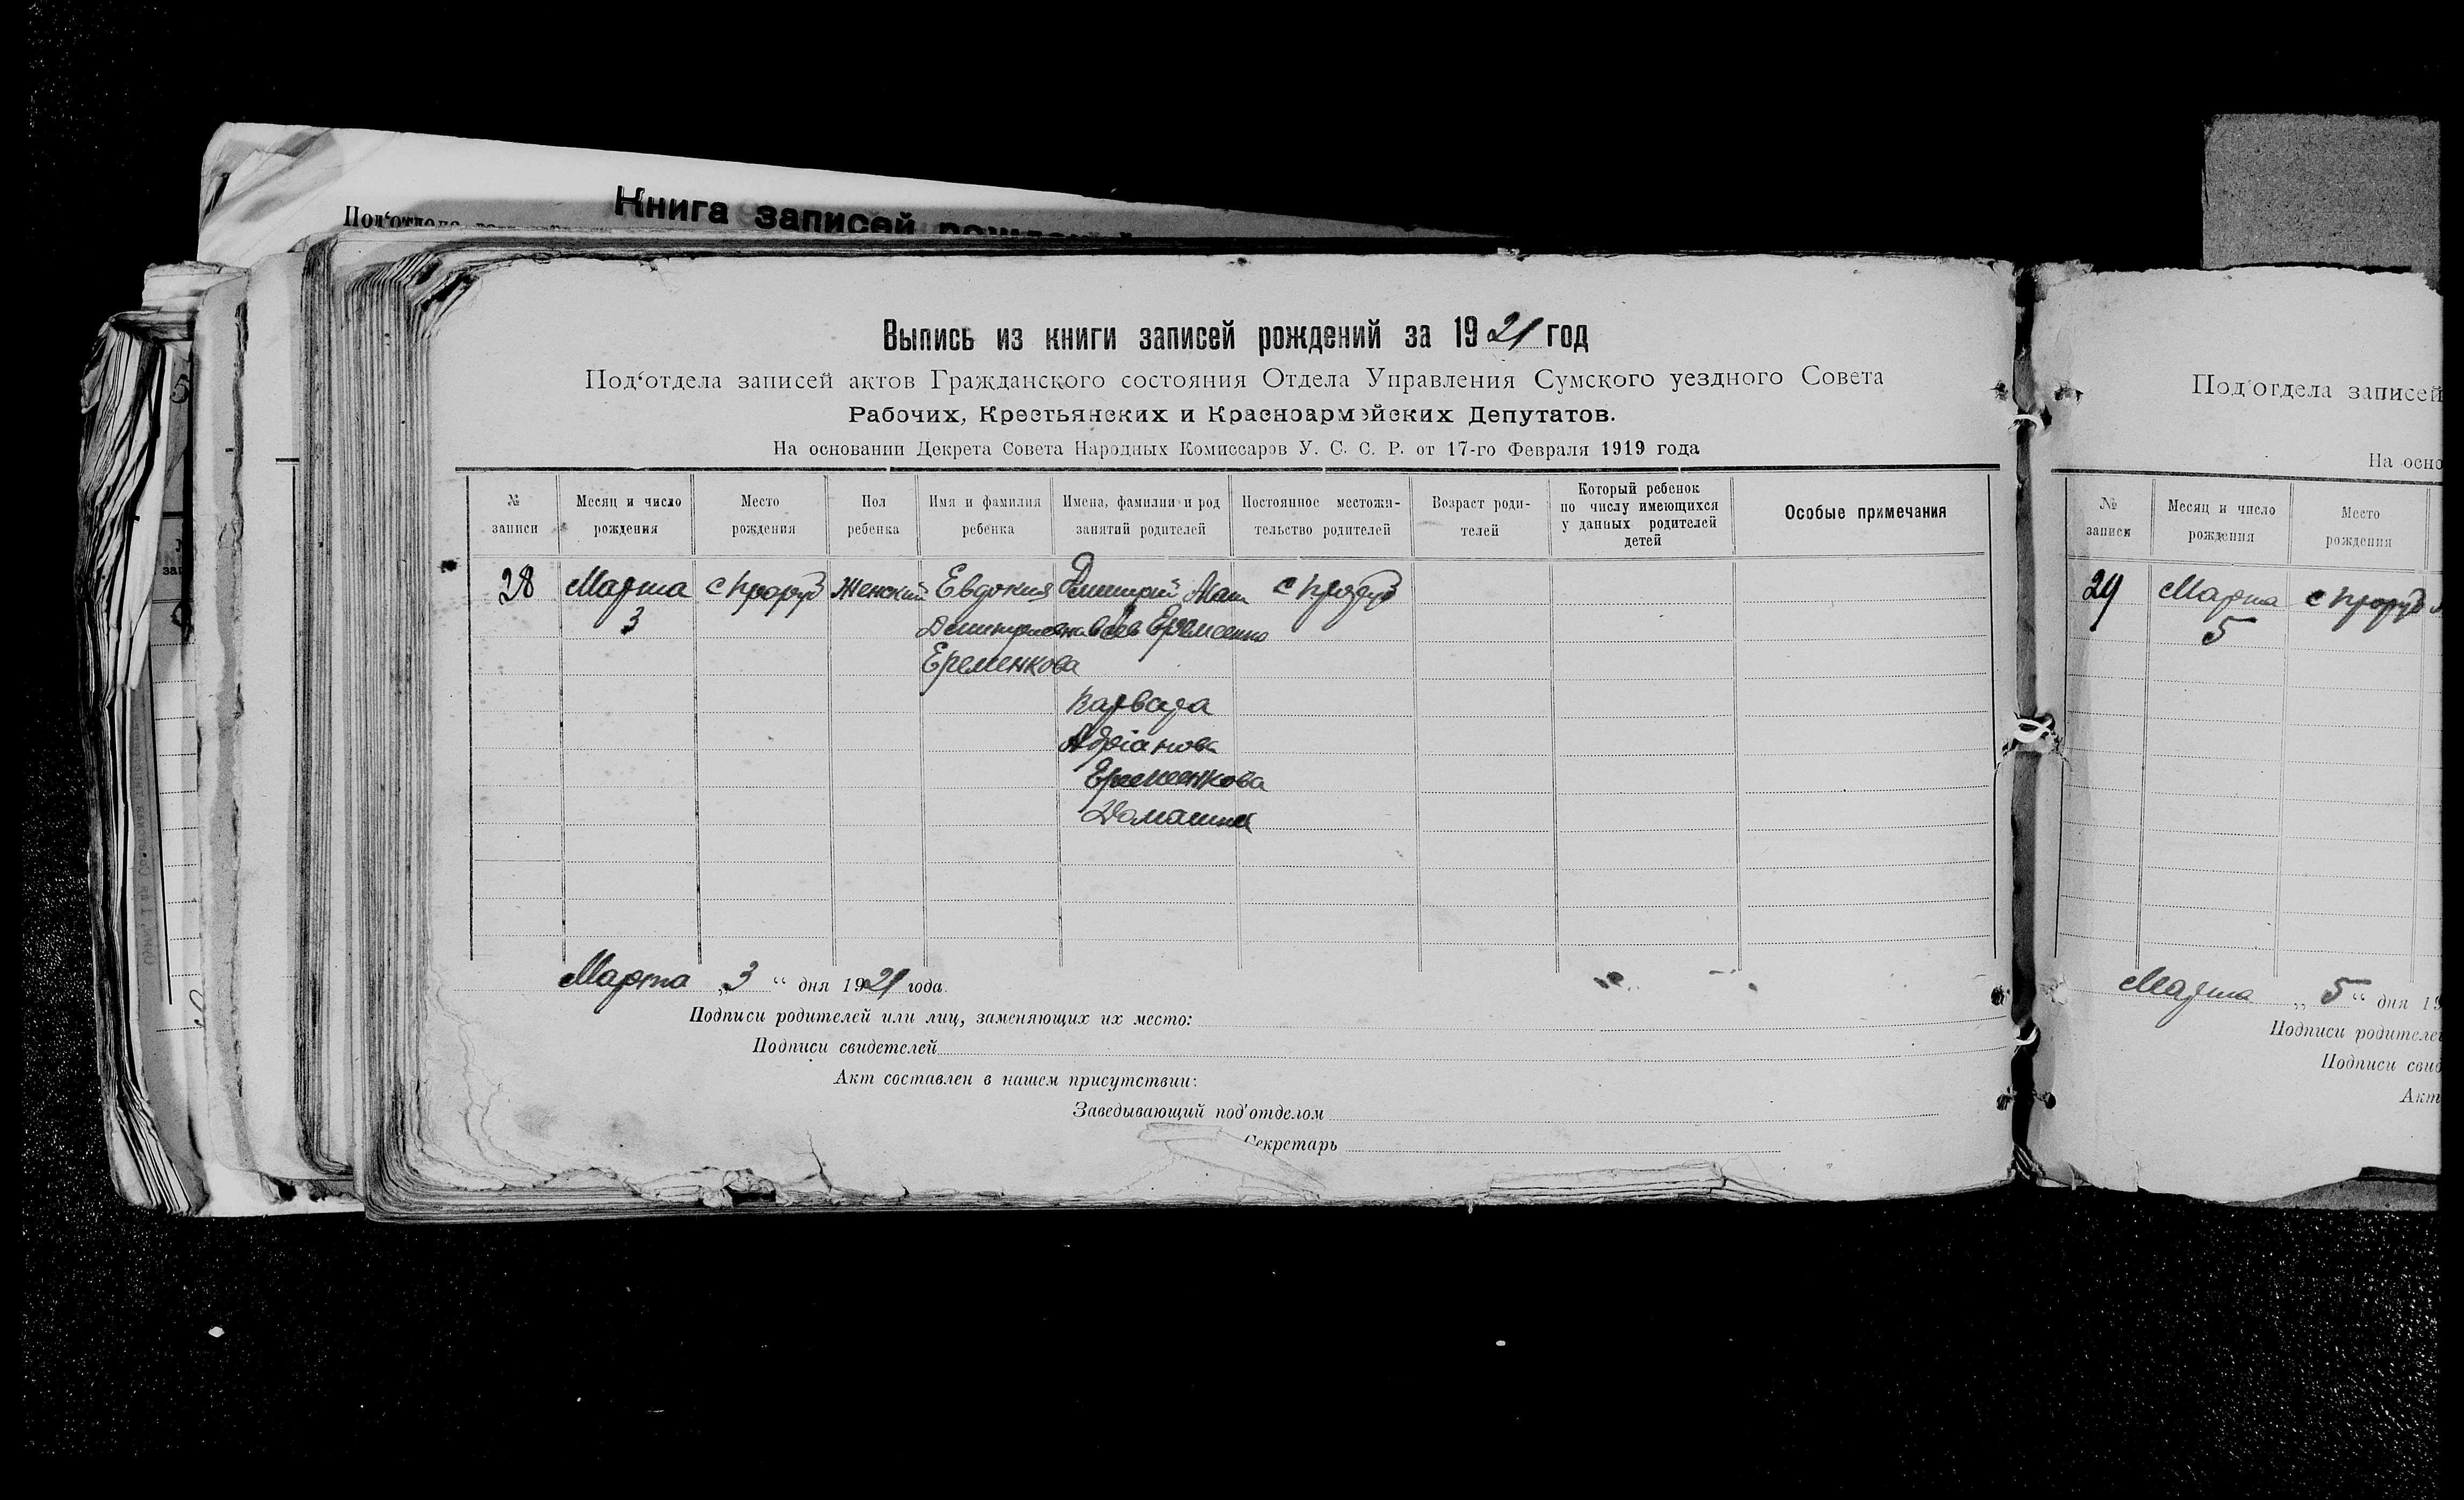 Книга записей рождений
Под‘отдела
Выпись из книги записей рождений за 1921 год
Под‘отдела записей актов Гражданского состояния Отдела Управления Сумского уездного Совета
Рабочих, Крестьянских и Красноармэйских Депутатов.
На основании Декрета Совета Народных Комиссаров У. С. С. Р. от 17-го Февраля 1919 года
№ записи
Месяц и число рождения
Место рождения
Пол ребенка
Имя и фамилия ребенка
Имена, фамилии и род занятий родителей
Постоянное местожи- тельство родителей
Возраст роди- телей
Который ребенок по числу имеющихся у данных родителей детей
Особые примечания
28
Марта
3
с Проруб
Женский
Евдокия
Дмитриевна
Еременкова
Дмитрий Мат
веев Еременко
Варвара
Адріанова
Еременкова
Домашн
с Проруб
Марта „ 3 “ дня 1921 года.
Подписи родителей или лиц, заменяющих их место:
Подписи свидетелей
Акт составлен в нашем присутствии:
Заведывающий под‘отделом
Секретарь
Под‘отдела записей
На осно
№ записи
Месяц и число рождения
Место рождения
29
Марта
5
с Проруб
Марта „ 5 “ дня 19
Подписи родителе
Подписи свид
Акт